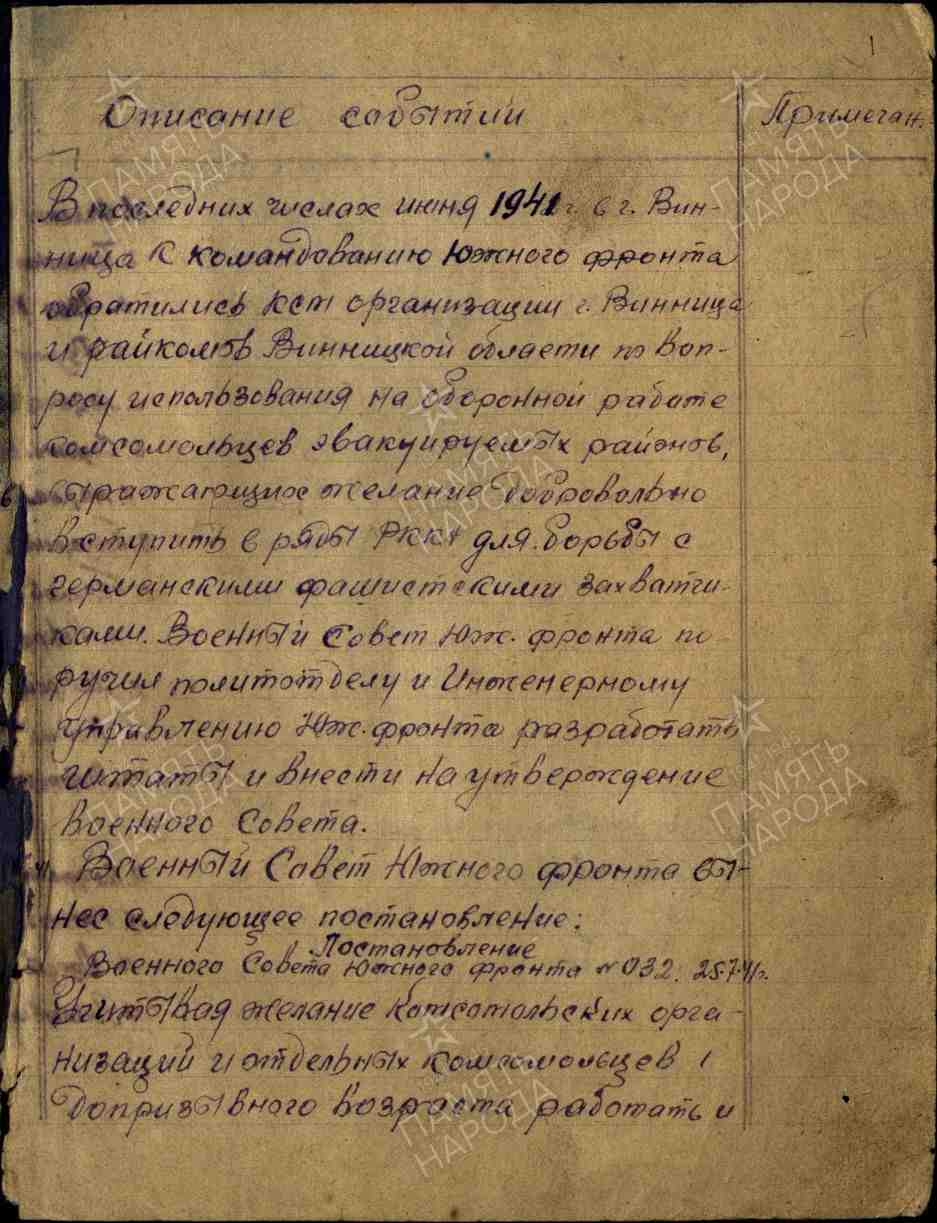 1
Описание событий
Примечан.
В последних числах июня 1941 г. в г. Вин-
ница к командованию Южного фронта
обратились ксм организации г. Винница
и райкомов Винницкой области по воп-
росу использования на оборонной работе
комсомольцев эвакуируемых районов,
выражающих желание добровольно
вступить в ряды РККА для борьбы с
германскими фашистскими захватчи-
ками. Военный Совет Юж. фронта по-
ручил политотделу и Инженерному
управлению Юж. фронта разработать
штаты и внести на утверждение
военного Совета.
Военный Совет Южного фронта вы-
нес следующее постановление:
Постановление
Военного Совета Южного фронта № 032. 25.7.41г.
Учитывая желание комсомольских орга-
низаций и отдельных комсомольцев
допризывного возраста работать и
ПАМЯТЬ НАРОДА
ПАМЯТЬ НАРОДА
ПАМЯТЬ НАРОДА
ПАМЯТЬ НАРОДА
ПАМЯТЬ НАРОДА
ПАМЯТЬ НАРОДА